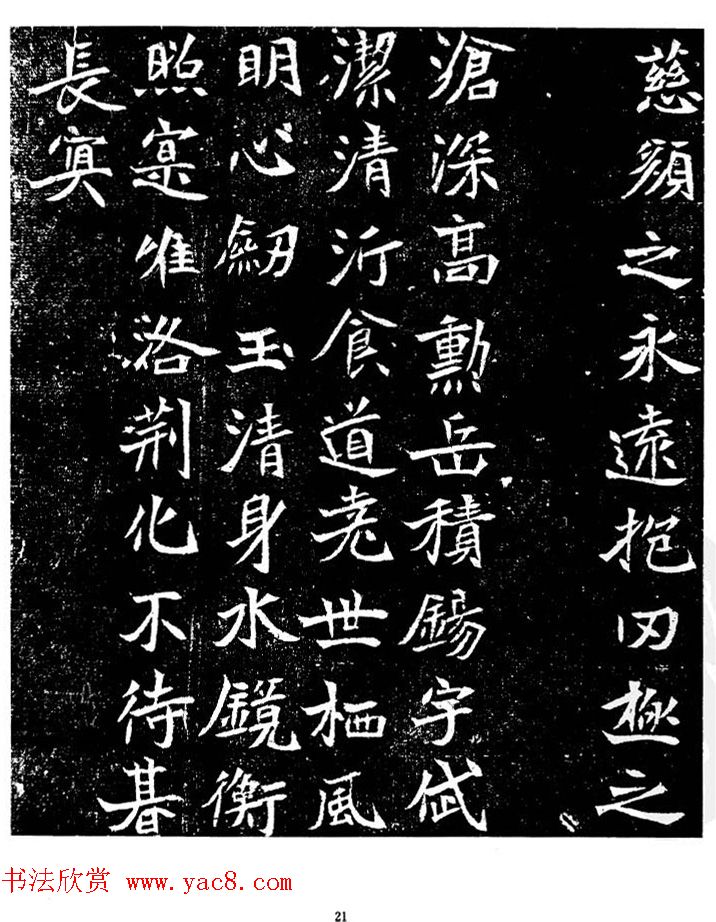 慈顏之永遠抱罔極之
滄深高勳岳積錫宇代
潔清沂食道老世栖風
明心劒玉清身水鏡衡
照寔唯洛荆化不待暮
長寘
书法欣赏 www.yac8.com
21